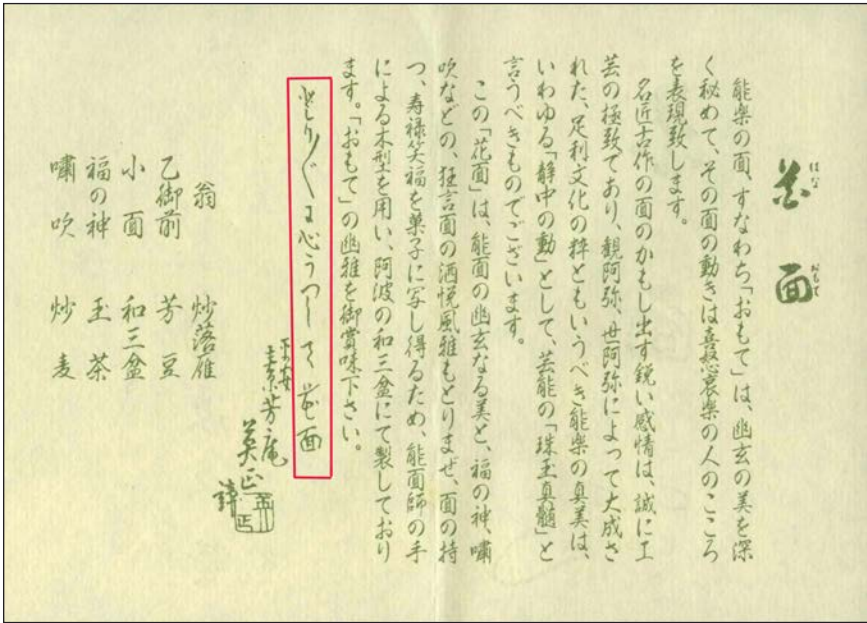 花面
はな おもて
能楽の面、すなわち「おもて」は、幽玄の美を深
く秘めて、その面の動きは喜怒哀楽の人のこころ
を表現致します。
名匠古作の面のかもし出す鋭い感情は、誠に工
芸の極致であり、観阿弥、世阿弥によって大成さ
れた、足利文化の粋ともいうべき能楽の真美は、
いわゆる「静中の動」として、芸能の「珠玉真髄」と
言うべきものでございます。
この「花面」は、能面の幽玄なる美と、福の神、嘯
吹などの、狂言面の洒悦風雅もとりまぜ、面の持
つ、寿禄笑福を菓子に写し得るため、能面師の手
による木型を用い、阿波の和三盆にて製しており
ます。「おもて」の幽雅を御賞味下さい。
とり〴〵に心うつして花面
平安
素芳庵
英正
翁 炒落雁
乙御前 芳豆
小面 和三盆
福の神 玉茶
嘯吹 炒麦